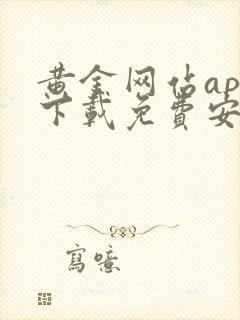 黄金网站ap
下载免费安
寫噫